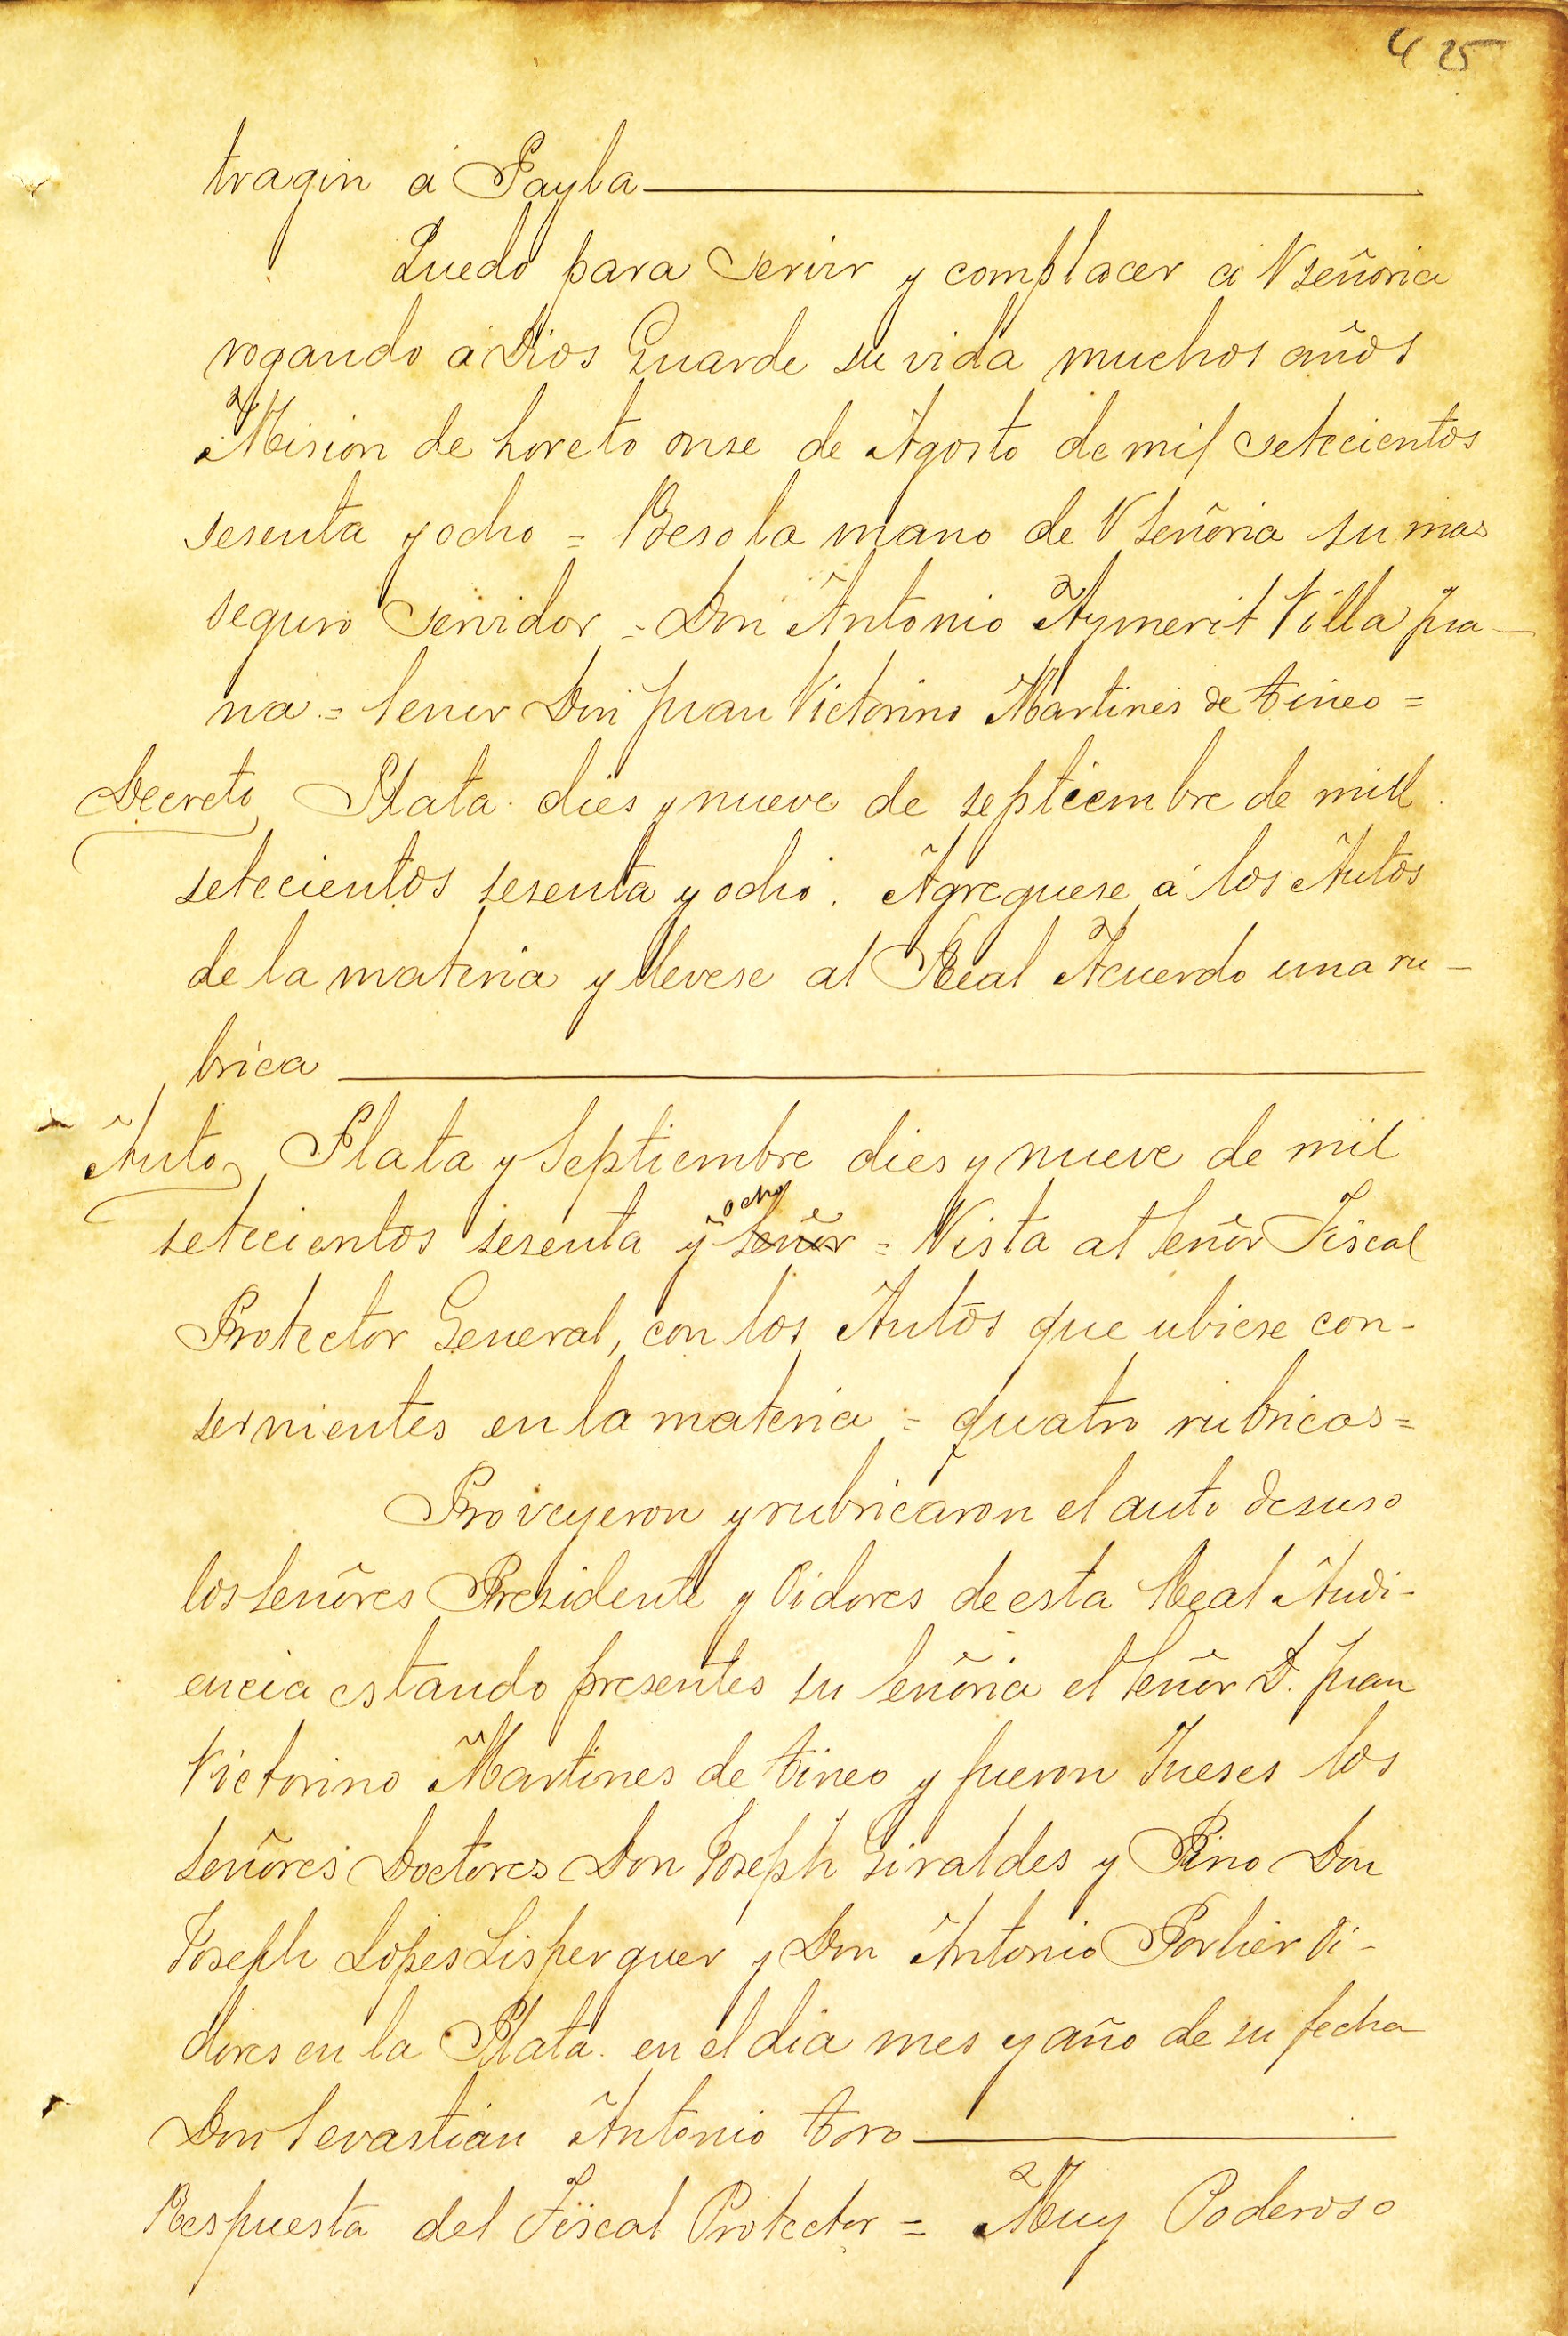 4 25
tragin á Payla
Quedo para servir y complacer á V señoria
rogando á Dios Guarde su vida muchos años
Mision de Loreto onse de Agosto de mil setecientos
sesenta y ocho = Beso la mano de V señoria su mas
seguro servidor = Don Antonio Aymerit Villa jua-
na = Señor Don Juan Victorino Martines de Tineo =
Decreto Plata dies y nueve de septiembre de mill
setecientos sesenta y ocho. Agreguese á los Autos
de la materia y llevese al Real Acuerdo una ru-
brica
Auto Plata y Septiembre dies y nueve de mil
setecientos sesenta y ocho señor = Vista al Señor Fiscal
Protector General, con los Autos que ubiese con-
sernientes en la materia = quatro rubricas =
Proveyeron y rubricaron el auto desuso
los Señores Presidente y Oidores de esta Real Audi-
encia estando presentes su Señoria el Señor D. Juan
Victorino Martines de Tineo y fueron Jueses los
Señores Doctores Don Joseph Giraldes y Pino Don
Joseph Lopes Lisperguer y Don Antonio Porlier Oi-
dores en la Plata. en el dia mes y año de su fecha
Don Sevastian Antonio Toro
Respuesta del Fiscal Protector = Muy Poderoso